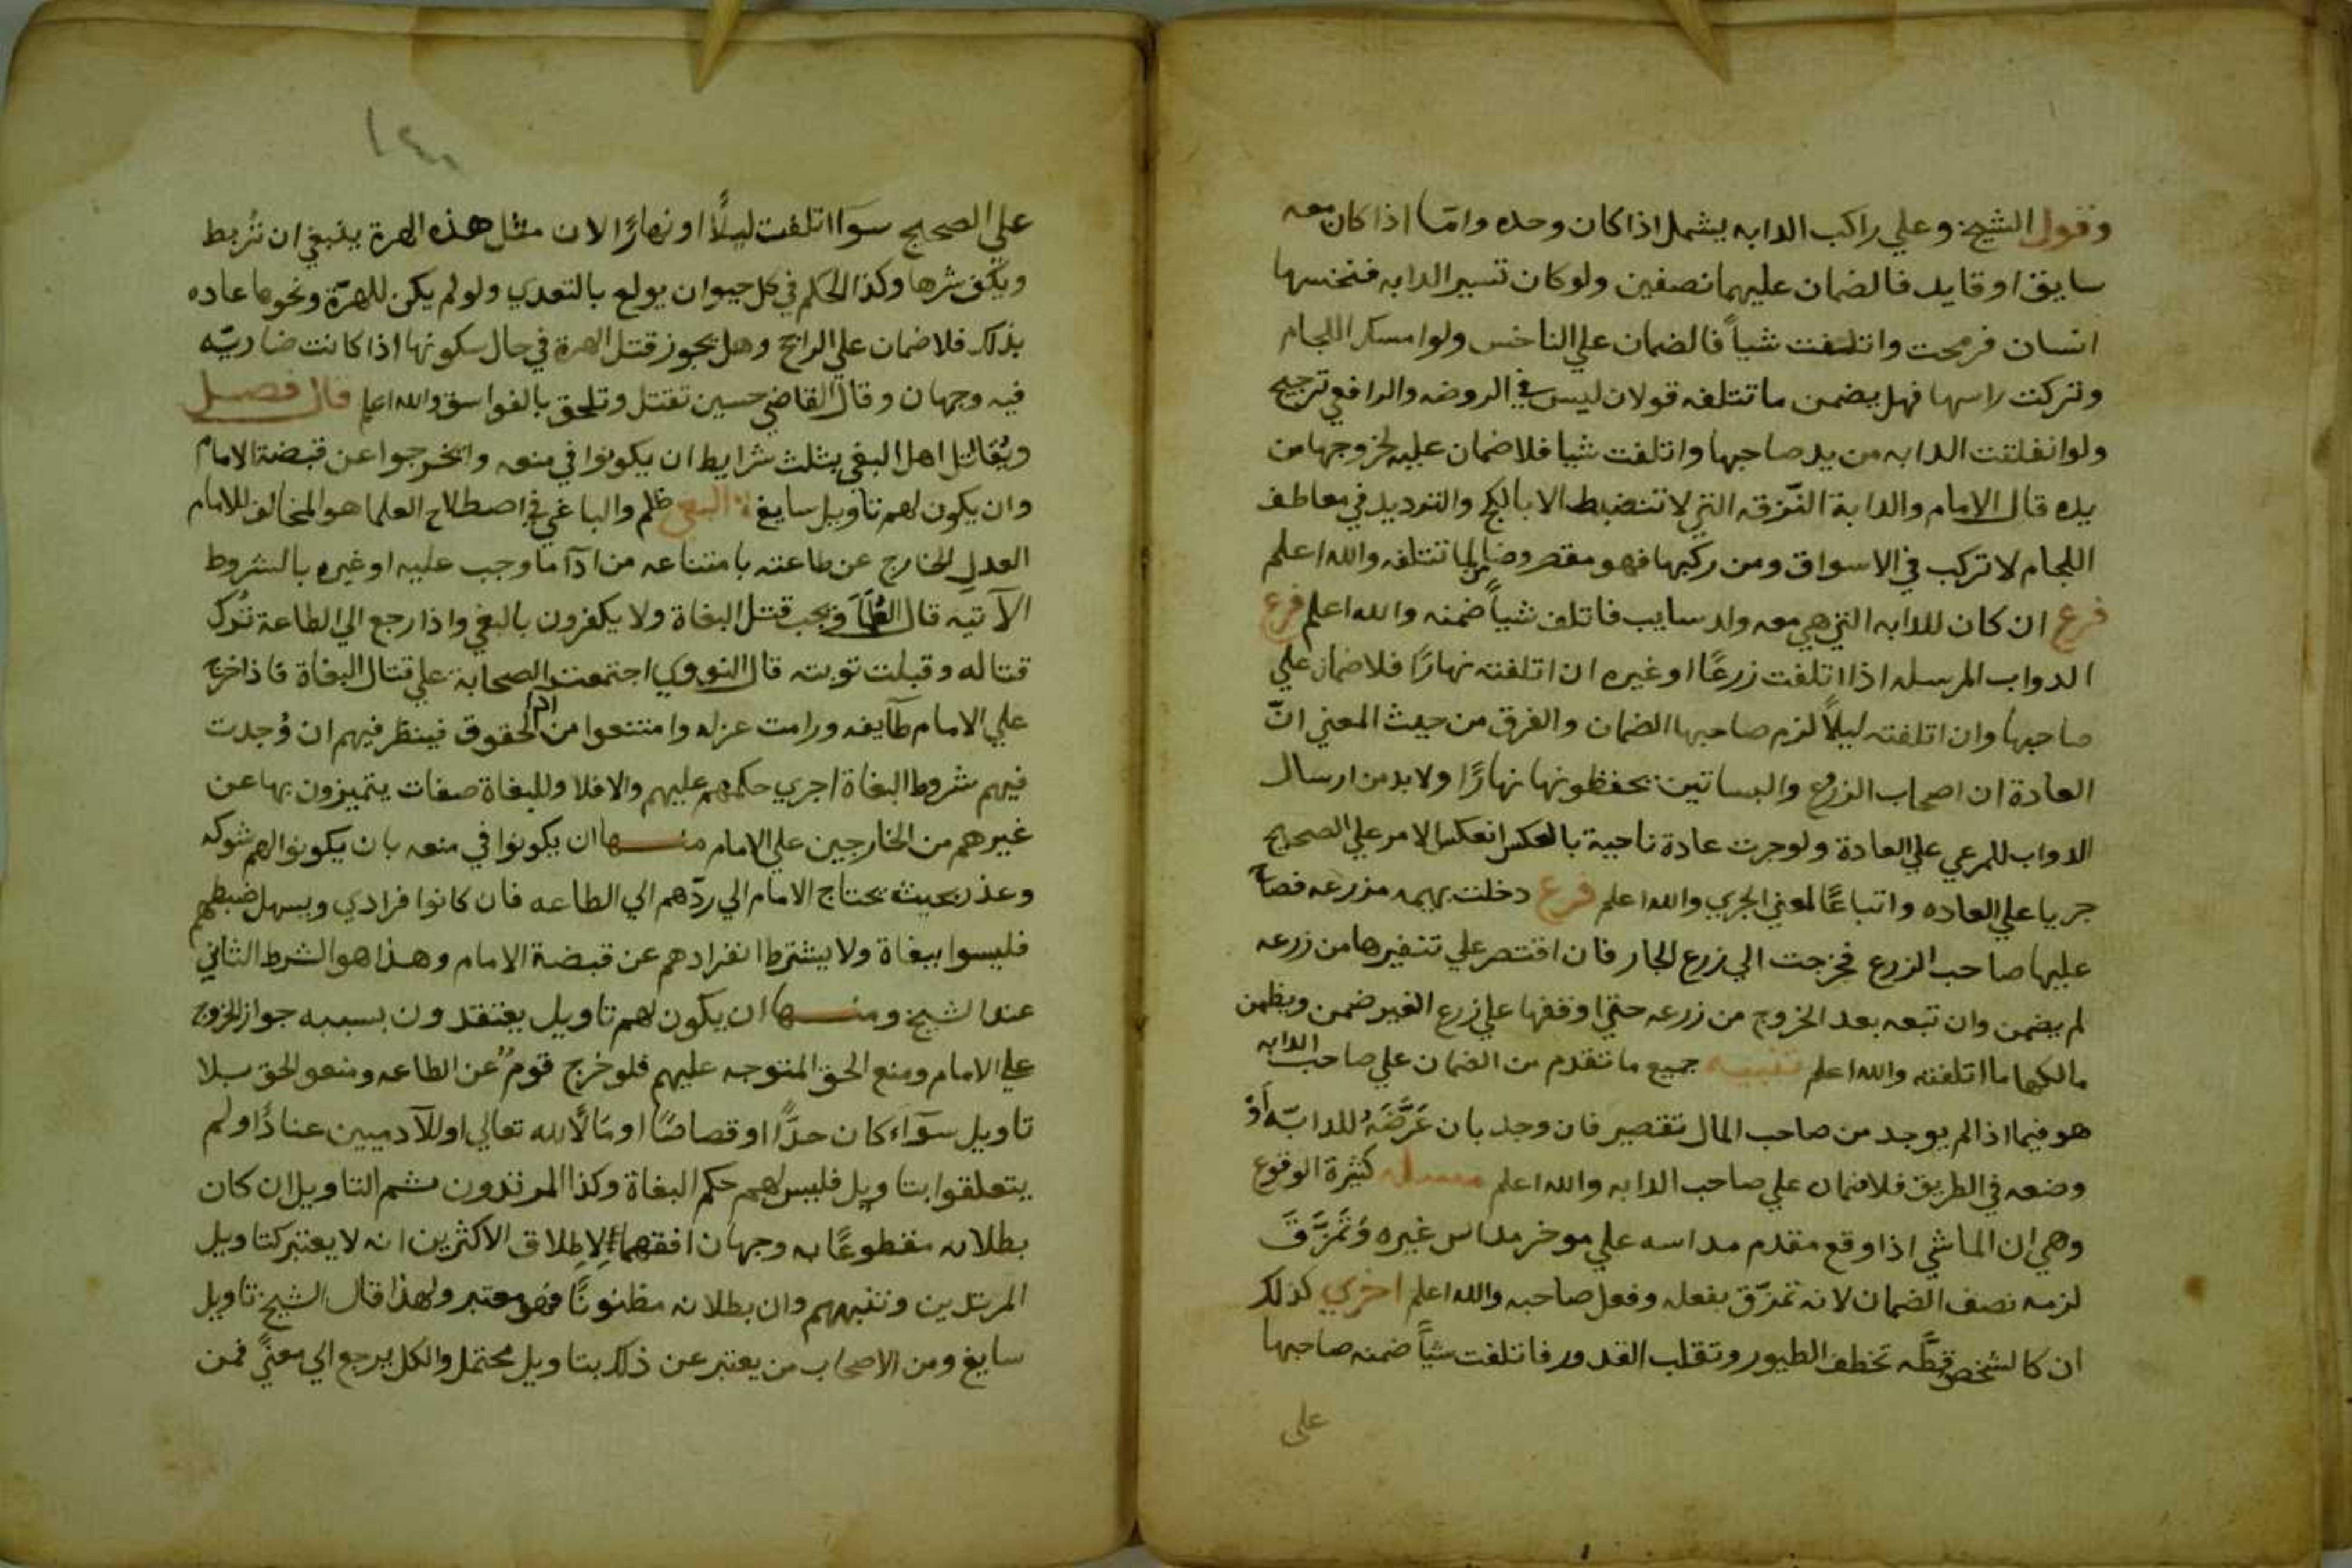 وقول الشيخ وعلي راكب الدابه يشمل اذا كان وحده وامّا اذا كان معه
سايق او قايد فالضمان عليهما نصفين ولو كان تسير الدابه فنخسها
انسان فرمحت واتلفت شياً فالضمان علي الناخس ولو امسك اللجام
وتركت راسها فهل يضمن ما تتلفه قولان ليس في الروضه والرافعي ترجيح
ولو انفلتت الدابه من يد صاحبها واتلفت شيا فلا ضمان عليه لخروجها من
يده قال الامام والدابة النّزقه التي لا تنضبط الا بالكبح والترديد في معاطف
اللجام لا تركب في الاسواق ومن ركبها فهو مقصر وضامن لما تتلفه والله اعلم
فرع ان كان للدابه التي هي معه ولد سايب فاتلف شياً ضمنه والله اعلم فرع
الدواب المرسله اذا اتلفت زرعًا او غيره ان اتلفته نهارًا فلا ضمان علي
صاحبها وان اتلفته ليلاً لزم صاحبها الضمان والفرق من حيث المعني انّ
العادة ان اصحاب الزرع والبساتين يحفظونها نهارًا ولا بد من ارسال
الدواب للمرعي علي العادة ولو جرت عادة ناحية بالعكس انعكس الامر علي الصحيح
جريا علي العاده واتباعًا لمعني الجري والله اعلم فرع دخلت بهيمه مزرعه فصاح
عليها صاحب الزرع فخرجت الي زرع الجار فان اقتصر علي تنفيرها من زرعه
لم يضمن وان تبعه بعد الخروج من زرعه حتي اوقفها علي زرع الغير ضمن ويظمن
مالكها ما اتلفته والله اعلم تنبيه جميع ما تقدم من الضمان علي صاحب الدابه
هو فيما اذا لم يوجد من صاحب المال تقصير فان وجد بان عَرَّضَهُ للدابّه أوْ
وضعه في الطريق فلا ضمان علي صاحب الدابه والله اعلم مسله كثيرة الوقوع
وهي ان الماشي اذا وقع مقدم مداسه علي موخر مداس غيره وَتَمَزَّقَ
لزمه نصف الضمان لانه تمزّق بفعله وفعل صاحبه والله اعلم اخري كذلك
ان كا لشخص قطّه تخطف الطيور وتقلب القدور فاتلفت شياً ضمنه صاحبها
علي
١٤٠
علي الصحيح سوآ اتلفت ليلاً او نهارًا لان مثل هذه الهرة ينبغي ان تُربط
ويكف شرها وكذا الحكم في كل حيوان يولع بالتعدي ولو لم يكن للهرّة ونحوها عاده
بذلك فلا ضمان علي الراجح وهل يجوز قتل الهرة في حال سكونها اذا كانت ضاريّه
فيه وجهان وقال القاضي حسين تقتل وتلحق بالفواسق والله اعلم قال فصل
ويُقاتل اهل البغي بثلث شرايط ان يكونوا في منعه وان يخرجوا عن قبضة الامام
وان يكون لهم تاويل سايغ البغي ظلم والباغي في اصطلاح العلما هو المخالف للامام
العدلِ الخارج عن طاعته بامتناعه من ادآ ما وجب عليه او غيره بالشروط
الآتيه قال العُلَمآ ويجب قتل البغاة ولا يكفرون بالبغي واذا رجع الي الطاعة تُرك
قتاله وقبلت توبته قال النووي اجتمعت الصحابة علي قتال البغاة فاذا خرج
علي الامام طآيفه ورامت عزله وامتنعوا من ادا الحقوق فينظر فيهم ان وُجدت
فيهم شروط البغاة اجري حكمهم عليهم والا فلا وللبغاة صفات يتميزون بها عن
غيرهم من الخارجين علي الامام منها ان يكونوا في منعه بان يكونوا لهم شوكه
وعدد بحيث يحتاج الامام الي ردّهم الي الطاعه فان كانوا فرادي ويسهل ضبطهم
فليسوا ببغاة ولا يشترط انفرادهم عن قبضة الامام وهذا هو الشرط الثاني
عند الشيخ ومنها ان يكون لهم تاويل يعتقدون بسببه جواز الخروج
علي الامام ومنع الحق المتوجه عليهم فلو خرج قومٌ عن الطاعه ومنعو الحق بلا
تاويل سوآء كان حدًّا او قصاصًا او مالاً لله تعالي او للآدميين عنادًا ولم
يتعلقوا بتاويل فليس لهم حكم البغاة وكذا المرتدون شم التاويل ان كان
بطلانه مقطوعًا به وجهان افقههما لاِطلاق الاكثرين انه لا يعتبر كتاويل
المرتدين وشبههم وان بطلانه مظنونًا فهو معتبر ولهذا قال الشيخ تاويل
سايغ ومن الاصحاب من يعتبر عن ذلك بتاويل محتمل والكل يرجع الي معنيً فمن